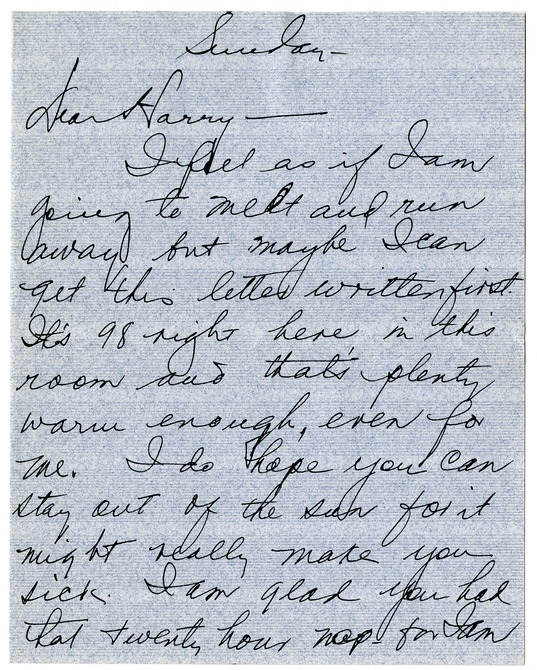 Sunday—
Dear Harry—
I feel as if I am
going to melt and run
away but maybe I can
get this letter written first.
It's 98 right here in this
room and that's plenty
warm enough, even for
me. I do hope you can
stay out of the sun for it
might really make you
sick. I am glad you had
that twenty hour nap for I am